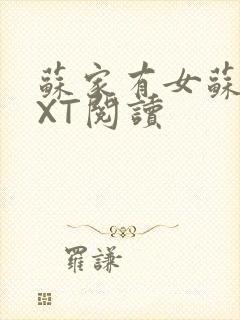 蘇家有女蘇
XT閱讀
羅謙